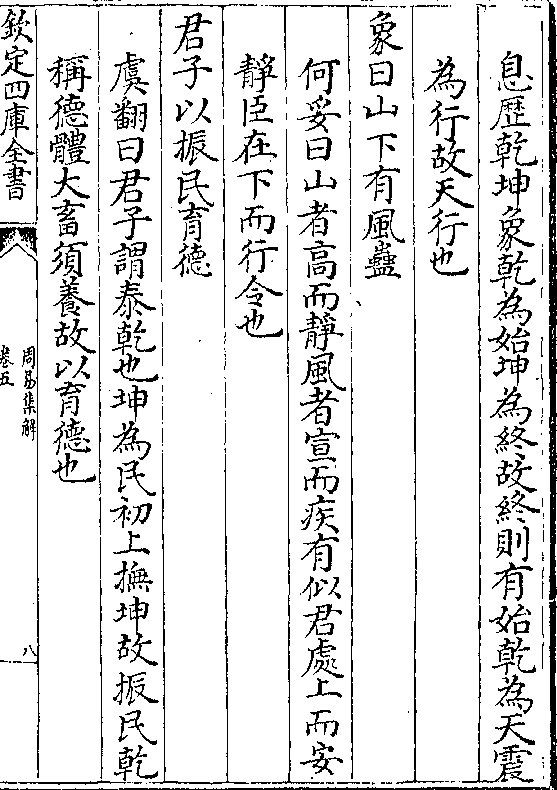 息歴乾坤象乾為始坤為終故終則有始乾為天震
為行故天行也
象曰山下有風蠱
何妥曰山者高而靜風者宣而疾有似君處上而安
靜臣在下而行令也
君子以振民育德
虞翻曰君子謂泰乾也坤為民初上撫坤故振民乾
稱德體大畜須養故以育德也
欽定四庫全書
周易集解
卷五
八